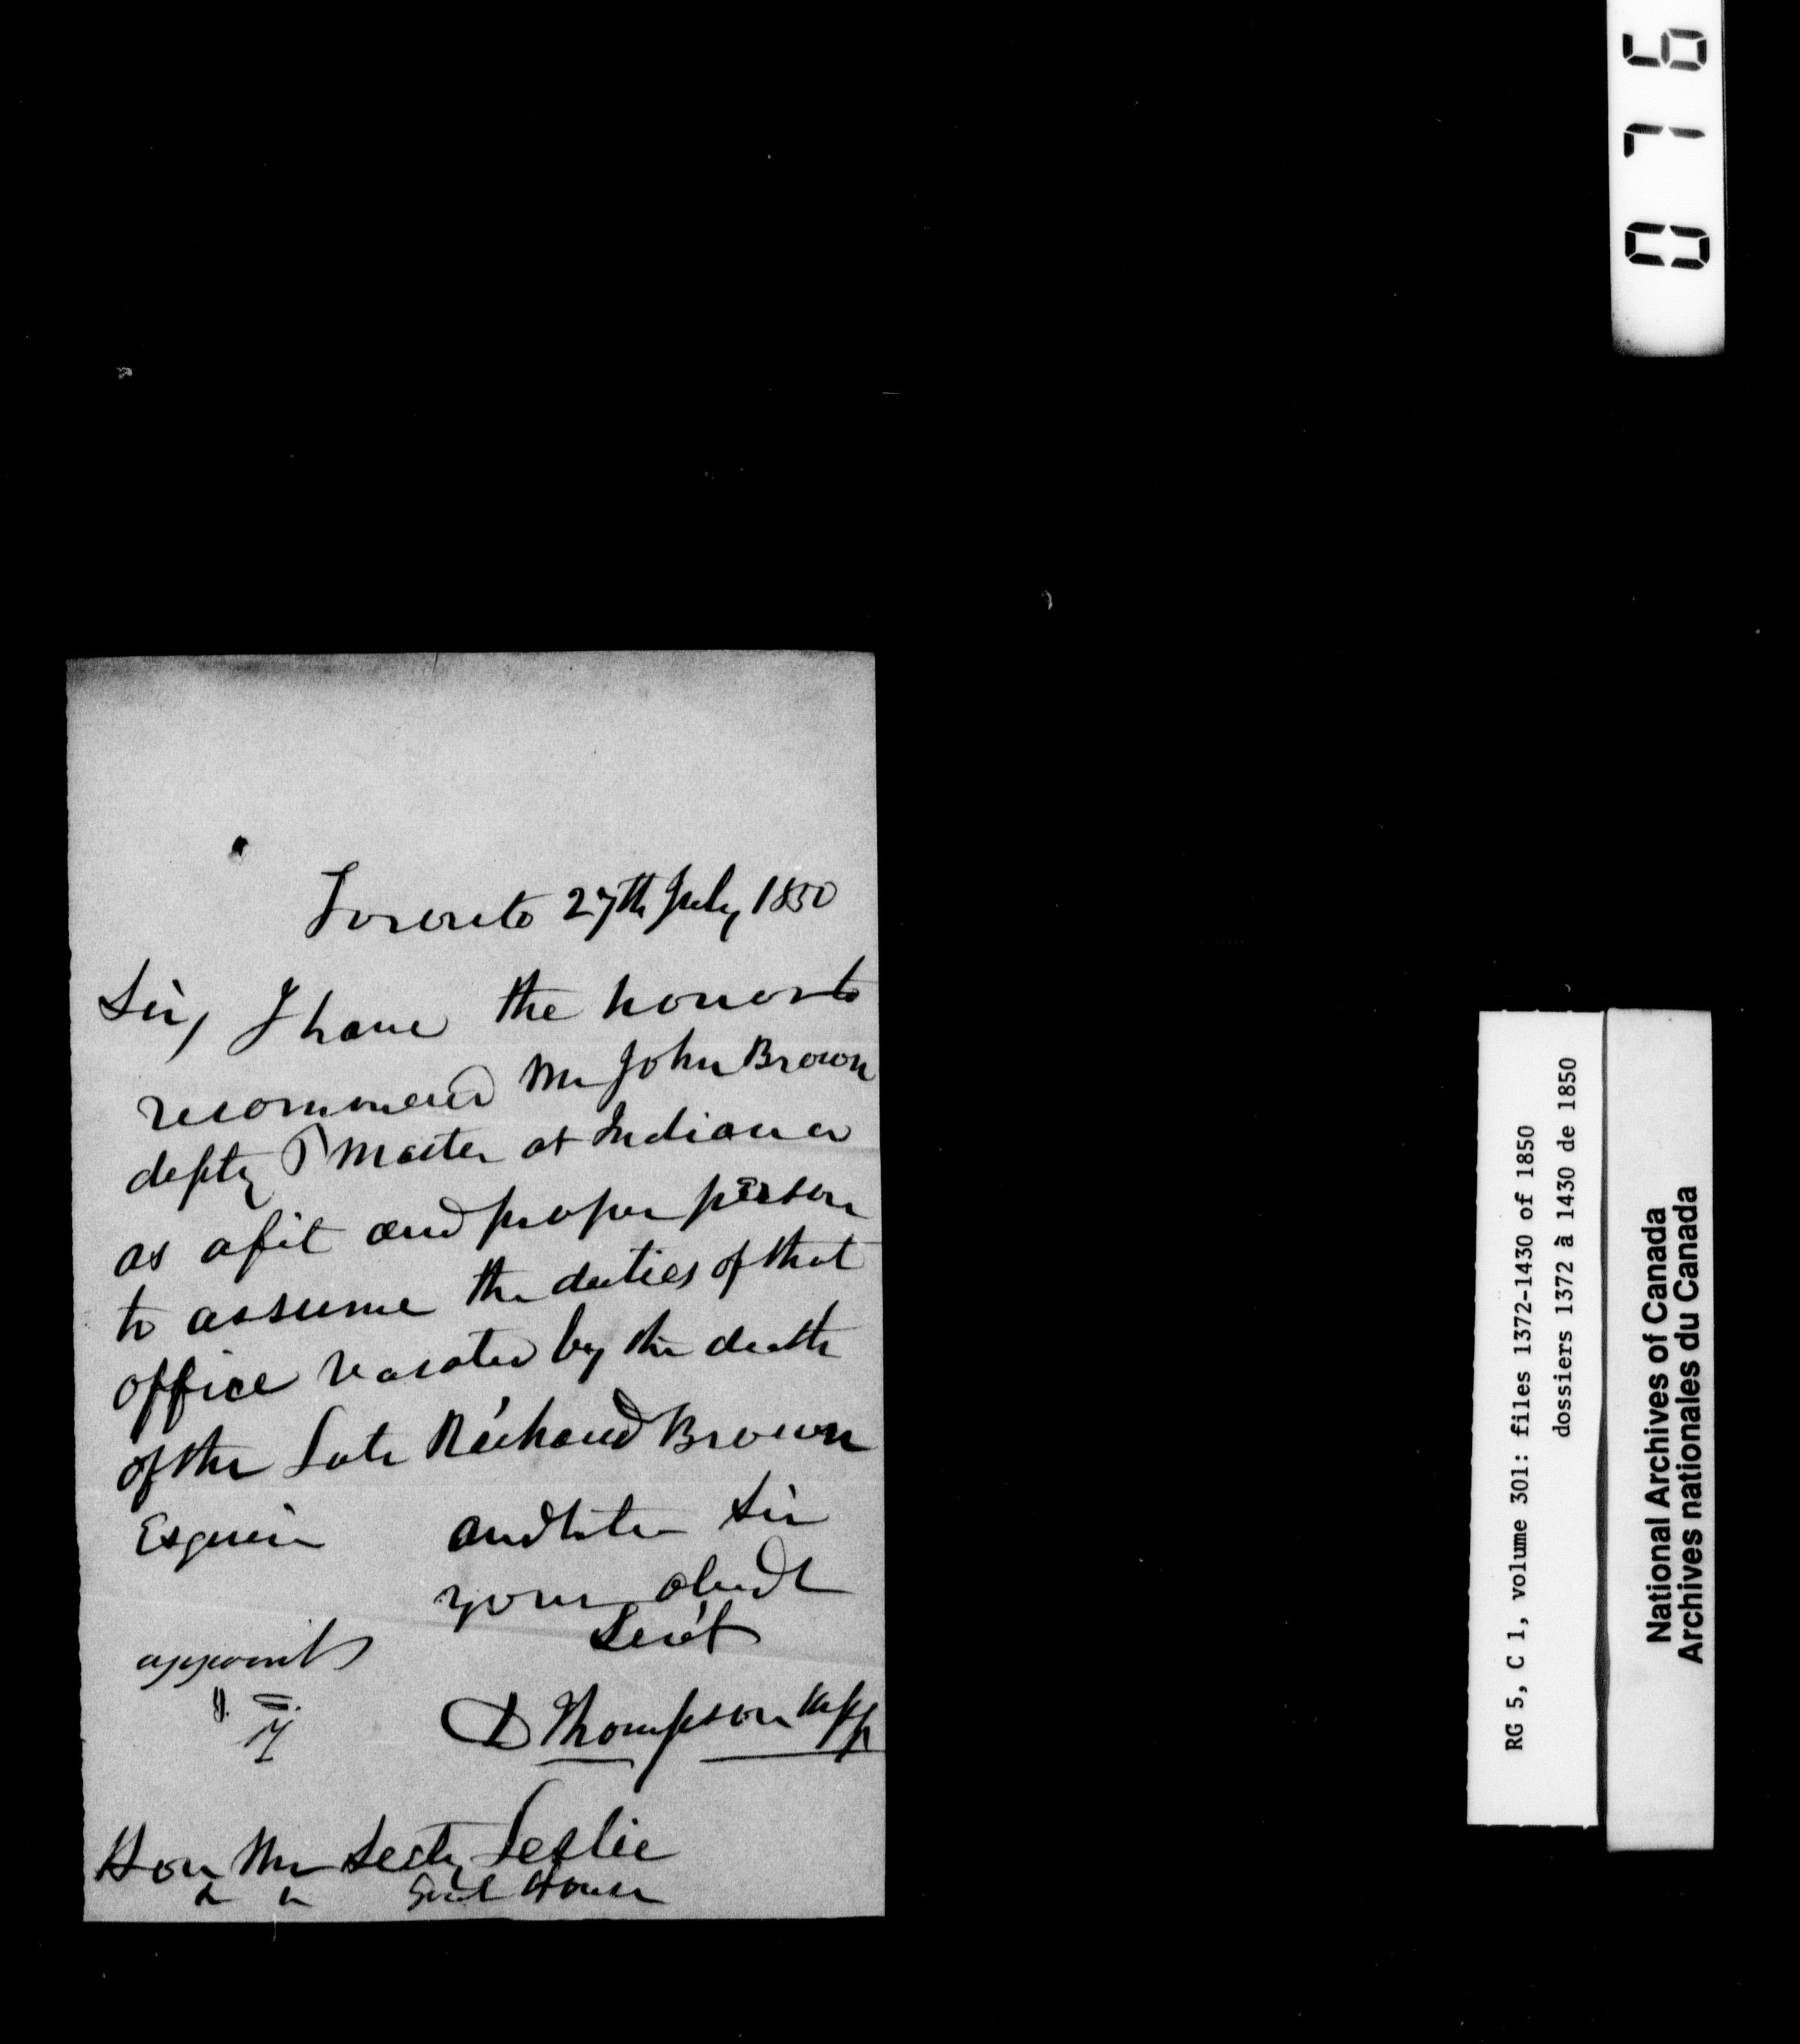 0776
Toronto 27th July 1850
Sir, I have the honor to
recommend Mr John Brown
depty P Master at Indiana
as a fit and proper person
to assume the duties of that
office vacated by the death
of the Late Richard Brown
Esquire and
Sir
your obedt
Servt
appoint
D Thompson MPP
Hon Mr Secty Leslie
&c &c Govt House
RG 5, C 1, volume 301: files 1372-1430 of 1850
dossiers 1372 à 1430 de 1850
National Archives of Canada
Archives nationales du Canada